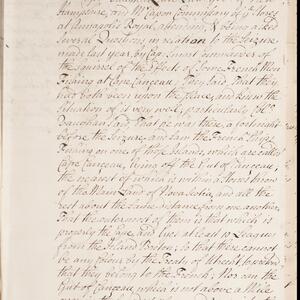 Hampshire, and Mr. Capon Commissary of ye Stores
at Annapolis Royal, attending, & being asked
Several Questions in relation to the Seizure
made last year by Cap. Smart Commander of
the Squirrel of the Effects of Some French Men
Fishing at Cape Canceau, They said, That they
had both been upon the place, and knew the
Situation of it very well, particularly
Vaughan said That he was there, a fortnight
before the Seizure, and saw the French People
Fishing on one of those Islands, which are called
Cape Canceau, lying off the Gut of Canceau,
the nearest of which is within a Stones throw
of the Main Land of Nova Scotia, and all the
rest about the Same distance from one another,
That the outermost of them is that which is
properly the Cape, and lies at least 10 Leagues
from the Island Breton; So that there cannot
be any colour by the Treaty of Utrecht to pretend
that they belong to the French; Nor can the
Gut of Canceau, which is not above a Mile